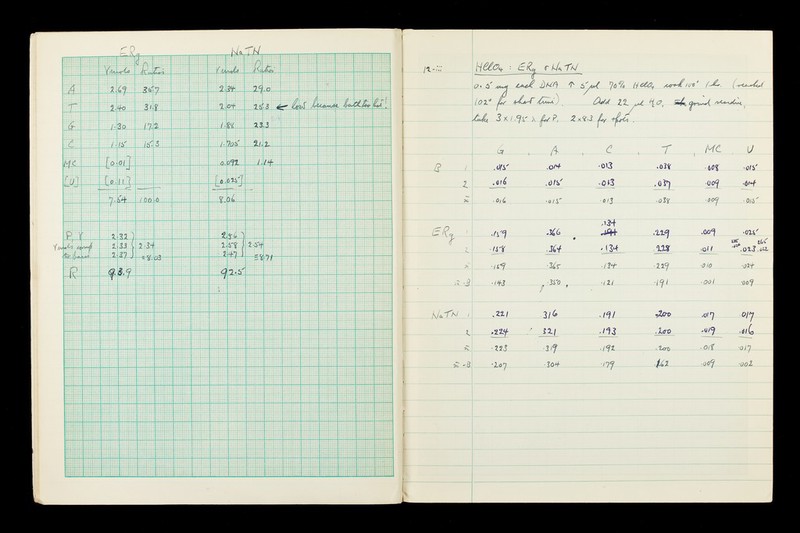 ERy NaTN
γ mols Ratios γ mols Ratios
A 2.69 35.7 2.34 29.0
T 2.40 31.8 2.04 25.3 ← low because bath too hot!
G 1.30 17.2 1.88 23.3
C 1.15 15.3 1.705 21.2
MC [0.01] 0.092 1.14
[U] [0.11] [0.025]
7.54 100.0 8.06
P γ 2.32 2.56
2.33 2.34 2.58 2.54
to bases 2.37 2.47
R 92.5
12-iii HClO4 : ERy & NaTN
0.5 mg each DNA ↑ 5 μl 70% HClO4 100° 1 hr. (reached
102° for short time). Add 22 μl H2O, grind residue,
take 3 x 1.95 λ for P. 2 x 8.3 for spots.
G A C T MC U
B 1 .015 .014 .013 .038 .008 .015
2 .016 .015 .013 .037 .009 .014
x̄ .016 .015 .013 .038 .009 .015
.134
ERy 1 .159 .366 .229 .009 .025
2 .158 .364 .134 .228 .011 .023
x̄ .159 .365 .134 .229 .010 .024
x̄-B .143 .350 .121 .191 .001 .009
NaTN 1 .221 316 .191 .200 .017 017
2 .224 321 .193 .200 .019 .016
x̄ .223 .319 .192 .200 .018 .017
x̄-B .207 .304 .179 .162 .009 .002